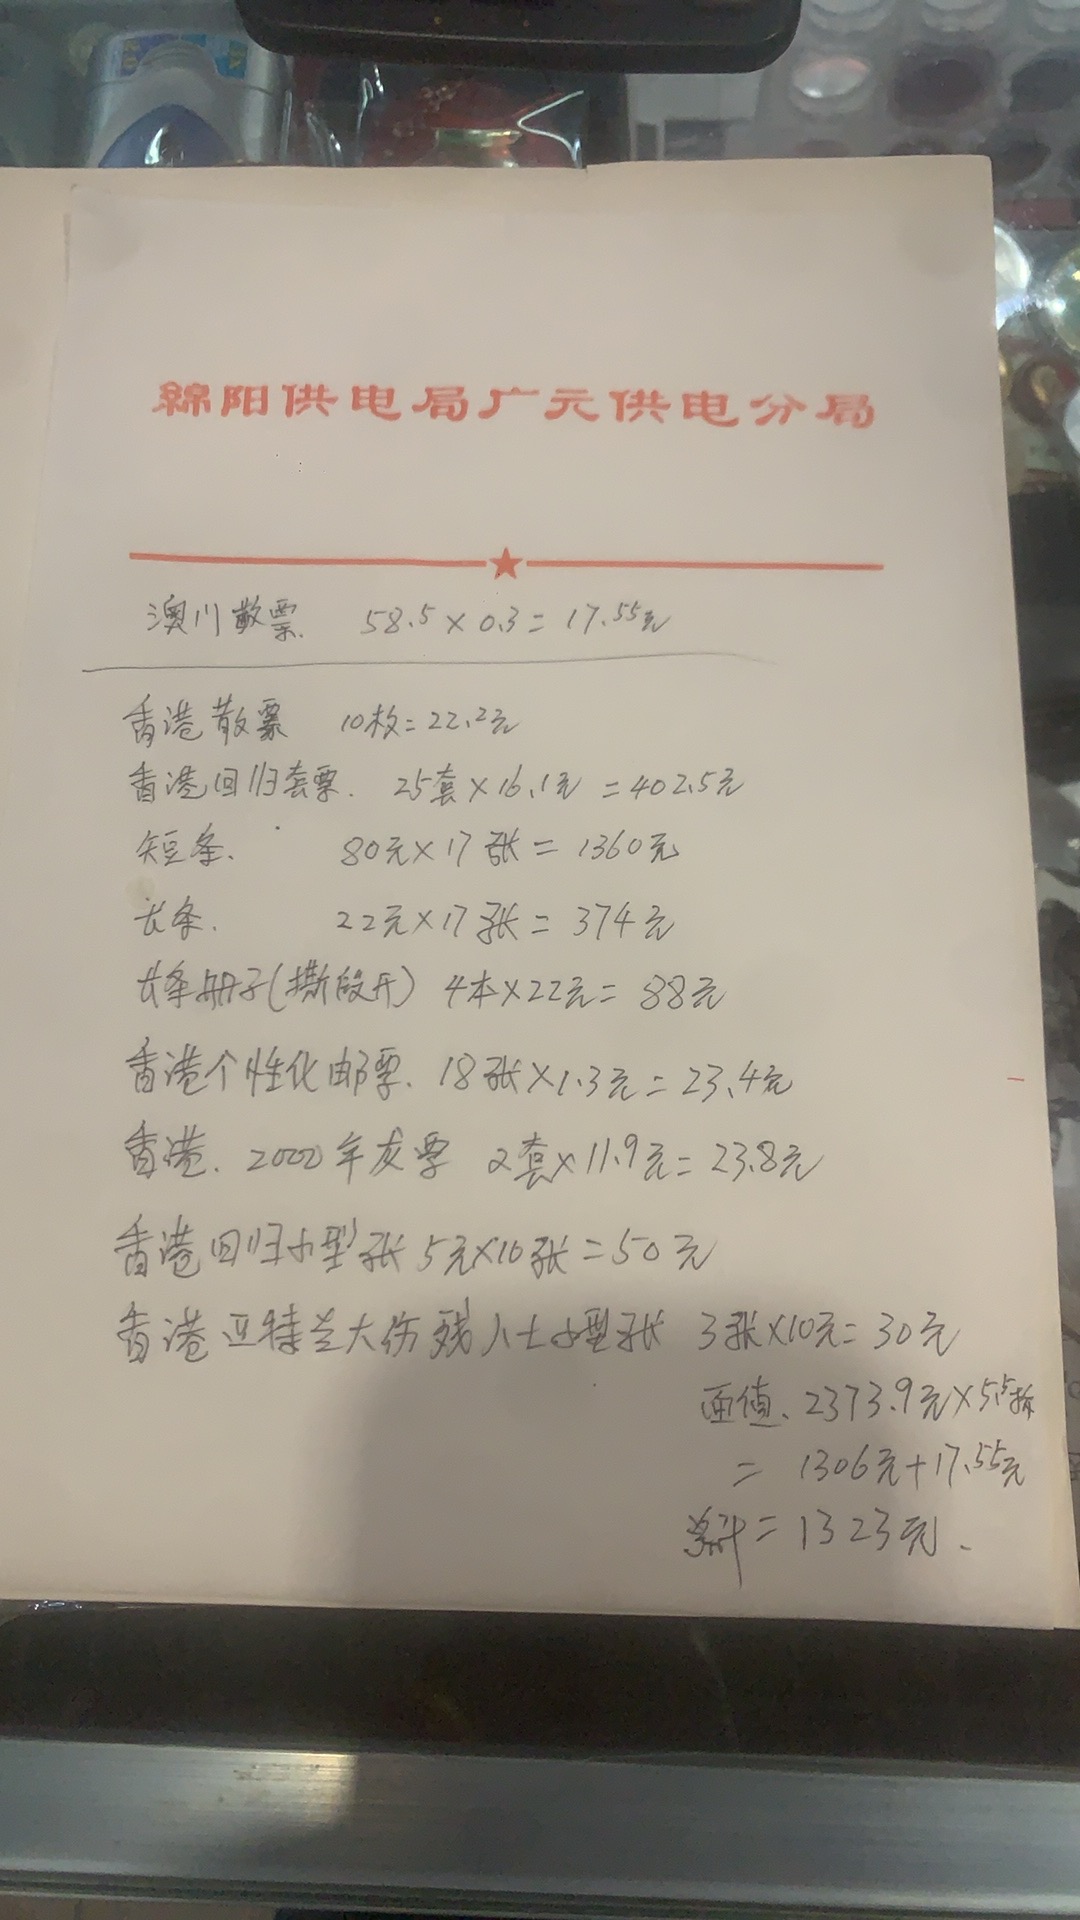 綿阳供电局广元供电分局
澳川散票 58.5×0.3=17.55元
香港散票 10枚=22.2元
香港回归套票. 25套×16.1元=402.5元
短条. 80元×17张=1360元
长条. 22元×17张=374元
长条册子(撕段开) 4本×22元=88元
香港个性化邮票. 18张×1.3元=23.4元
香港. 2000年龙票 2套×11.9元=23.8元
香港回归小型张 5元×10张=50元
香港亚特兰大伤残人士小型张 3张×10元=30元
面值. 2373.9元×5.5折
= 1306元+17.55元
总计=1323元.